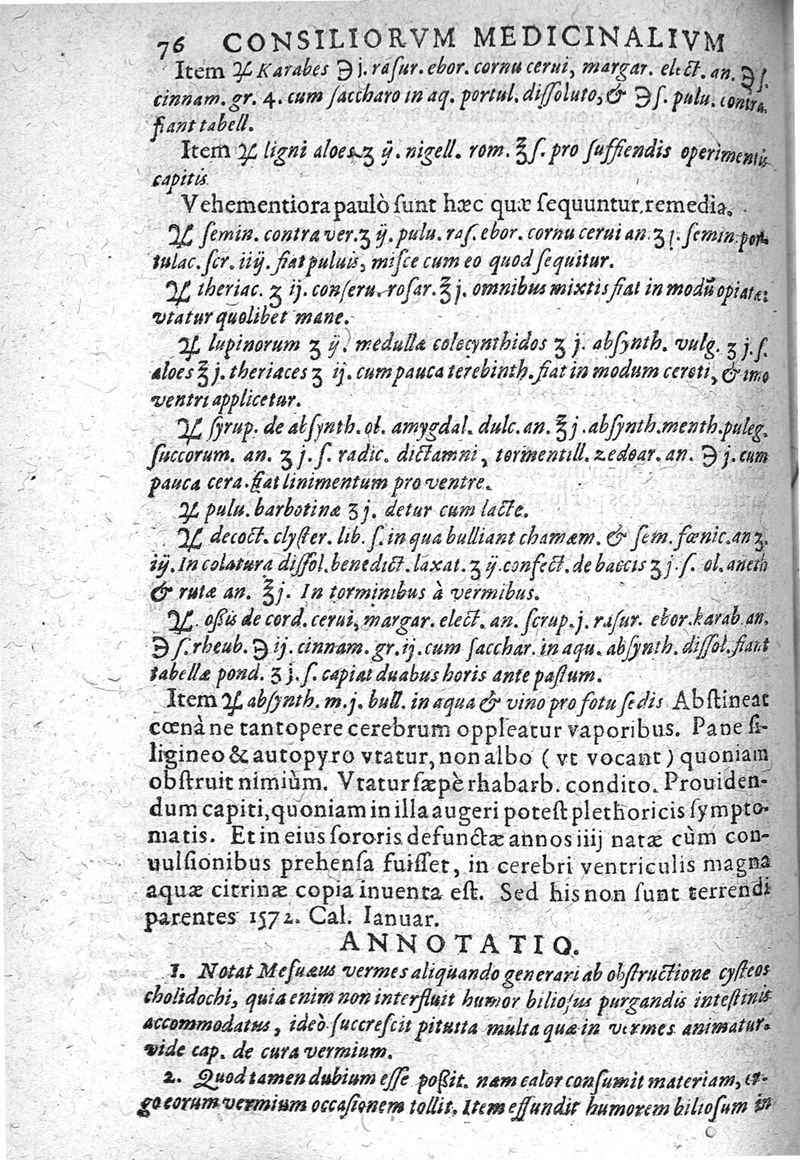 76 CONSILIORVM MEDICINALIVM
Item ℞ Karabes ℈ j. raſur. ebor. cornu cerui, margar. elect. an. ℈ ſ.
cinnam. gr. 4. cum ſaccharo in aq. portul. diſſoluto, & ℈ ſ. pulu. contra.
fiant tabell.
Item ℞ ligni aloes ʒ ij. nigell. rom. ℥ ſ. pro ſuffiendis operimentis
capitis
Vehementiora paulò ſunt hæc quæ ſequuntur remedia.
℞ ſemin. contra ver. ʒ ij. pulu. raſ. ebor. cornu cerui an. ʒ j. ſemin. por-
tulac. ſcr. iiij. fiat puluis, miſce cum eo quod ſequitur.
℞ theriac. ʒ ij. conſeru. roſar. ℥ j. omnibus mixtis fiat in modū opiatæ:
vtatur quolibet mane.
℞ lupinorum ʒ ij. medullæ colocynthidos ʒ j. abſynth. vulg. ʒ j. ſ.
aloes ℥ j. theriaces ʒ ij. cum pauca terebinth. fiat in modum ceroti, & imo
ventri applicetur.
℞ ſyrup. de abſynth. ol. amygdal. dulc. an. ℥ j. abſynth. menth. puleg.
ſuccorum. an. ʒ j. ſ. radic. dictamni, tormentill. zedoar. an. ℈ j. cum
pauca cera. fiat linimentum pro ventre.
℞ pulu. barbotinæ ʒ j. detur cum lacte.
℞ decoct. clyſter. lib. ſ. in qua bulliant chamæm. & ſem. fœnic. an ʒ.
iij. In colatura diſſol. benedict. laxat. ʒ ij. confect. de baccis ʒ j. ſ. ol. aneth
& rutæ an. ℥ j. In torminibus à vermibus.
℞. oßis de cord. cerui, margar. elect. an. ſcrup. j. raſur. ebor. karab. an.
℈ ſ. rheub. ℈ ij. cinnam. gr. ij. cum ſacchar. in aqu. abſynth. diſſol. fiant
tabellæ pond. ʒ j. ſ. capiat duabus horis ante paſtum.
Item ℞ abſynth. m. j. bull. in aqua & vino pro fotu ſedis Abſtineat
cœnà ne tantopere cerebrum oppleatur vaporibus. Pane ſi-
ligineo & autopyro vtatur, non albo ( vt vocant ) quoniam
obſtruit nimiùm. Vtatur ſæpè rhabarb. condito. Prouiden-
dum capiti, quoniam in illa augeri poteſt plethoricis ſympto-
matis. Et in eius ſororis defunctæ annos iiij natæ cùm con-
uulſionibus prehenſa fuiſſet, in cerebri ventriculis magna
aquæ citrinæ copia inuenta eſt. Sed his non ſunt terrendi
parentes 1572. Cal. Ianuar.
ANNOTATIO.
1. Notat Meſuæus vermes aliquando generari ab obſtructione cyſteos
cholidochi, quia enim non interfluit humor bilioſus purgandis inteſtinis
accommodatus, ideò ſuccreſcit pituita multa quæ in vermes animatur.
vide cap. de cura vermium.
2. Quod tamen dubium eſſe poßit. nam calor conſumit materiam, er-
go eorum vermium occaſionem tollit. Item effundit humorem bilioſum in